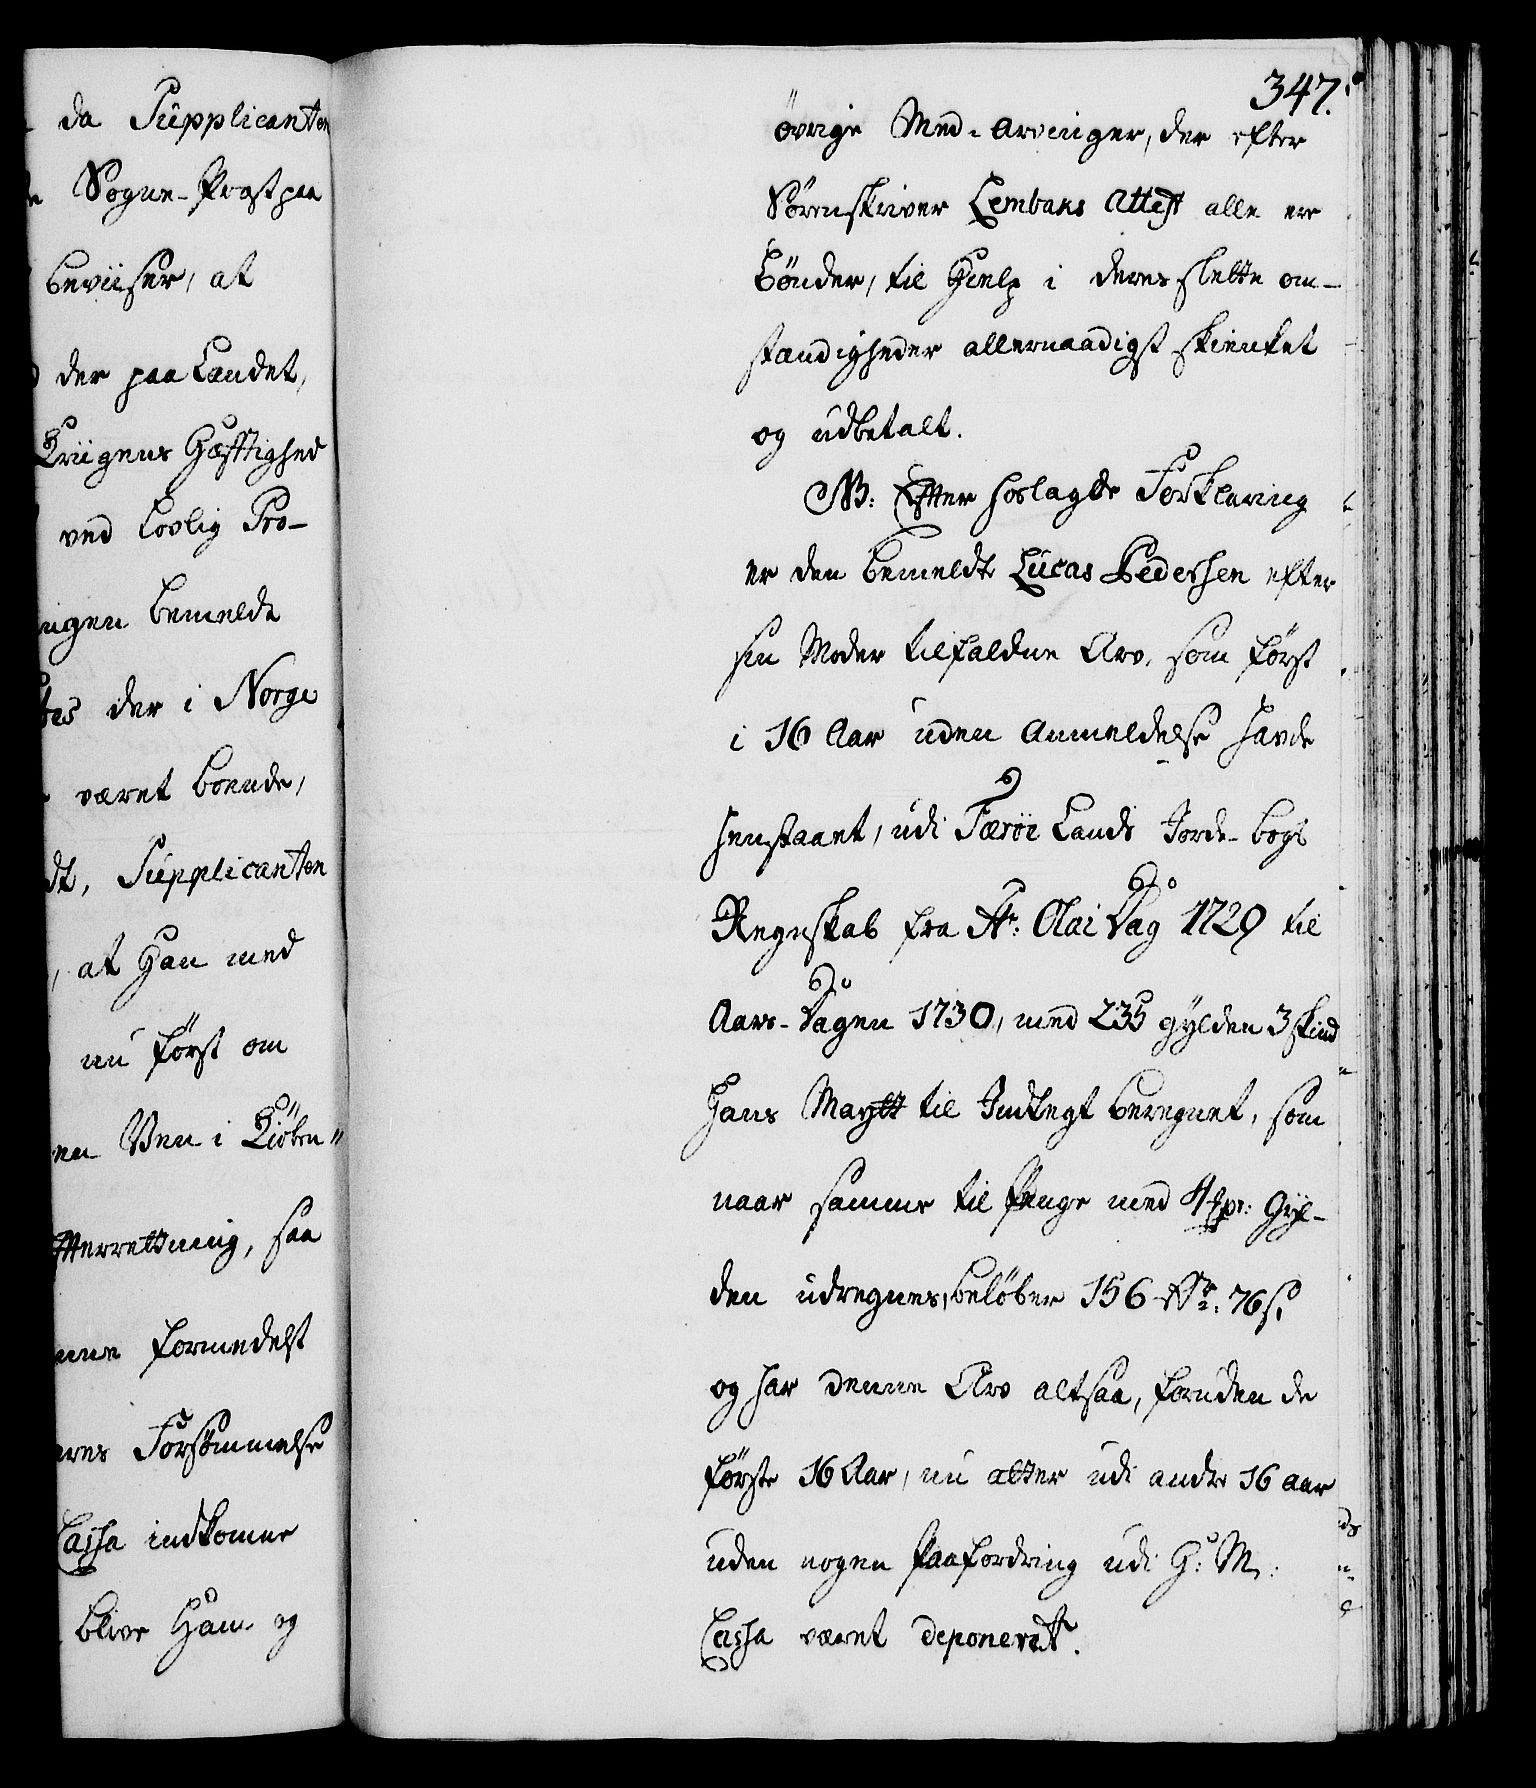 da Supplicanten
Sogne-Præst paa
beviiser, at
der paa Landet,
Kriigens Hæfftighed
ved Lovlig Pro-
ingen bemeldt
der i Norge
været boende,
Supplicanten
, at Han med
nu først om
en Ven i Kiöben"
saa
formedelst
Forsömmelse
Cassa indkomne
blive Ham og
347.
övrige Med-Arvinger, der efter
Sörenskriver Lembaks Attest alle ere
Bönder, til Hielp i deres slette om-
stændigheder allernaadigst skienket
og udbetalt.
NB: Efter hoslagde Forklaring
er den bemeldte Lucas Pedersen efter
sin Moder tilfaldne Arv, som först
i 16 Aar uden Anmeldelse havde
henstaaet, udi Færöe Lands Jorde-bogs
Regnskab fra St: Olai Dag 1729 til
Aars-Dagen 1730, med 235 gylden 3 skind
Hans Maytt til Indtegt beregnet, som
naar samme til Penge med 4 pr: Gyl-
den udregnes, belöber 156 Rdr: 76 s.
og har denne Arv altsaa, foruden de
förste 16 Aar, nu atter udi andre 16 aar
uden nogen Paafordring udi H: M:
Cassa været deponerett.